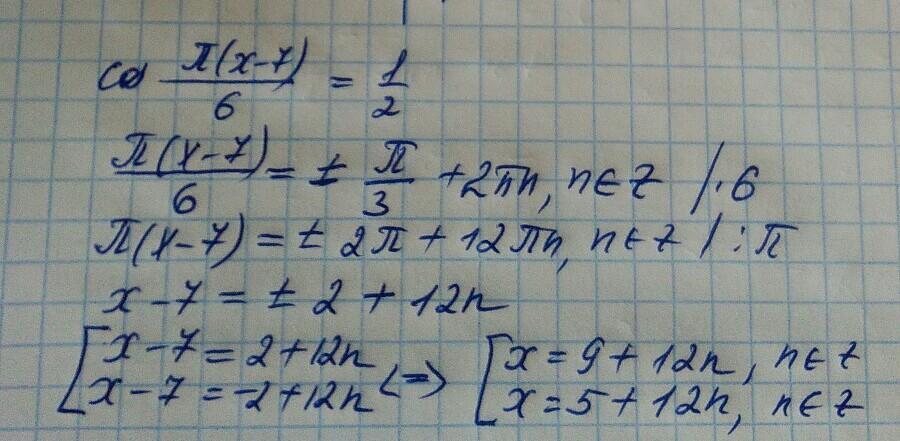 cos π(x-7)/6 = 1/2
π(x-7)/6 = ± π/3 + 2πn, n∈Z /·6
π(x-7) = ± 2π + 12πn, n∈Z /:π
x-7 = ± 2 + 12n
[x-7 = 2+12n <=> [x = 9 + 12n, n∈Z
x-7 = -2+12n x = 5 + 12n, n∈Z